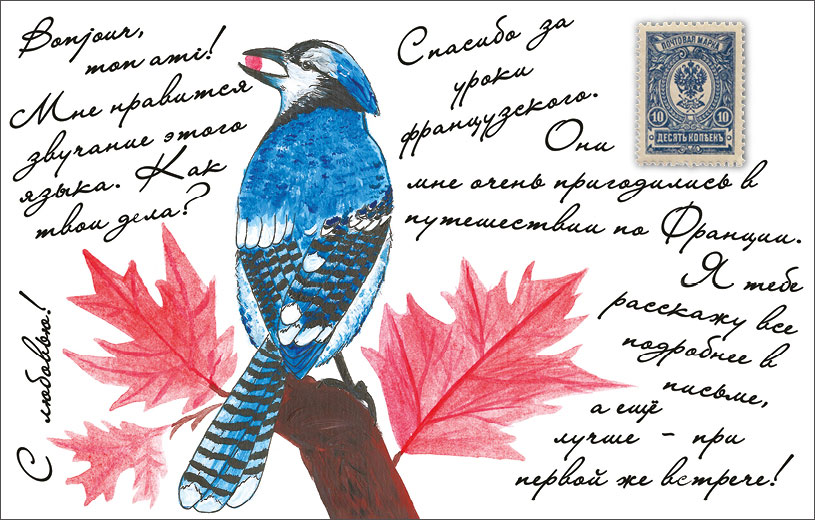 Bonjour,
mon ami!
Мне нравится
звучание этого
языка. Как
твои дела?
С любовью!
Спасибо за
уроки
французского.
Они
мне очень пригодились в
путешествии по Франции.
Я тебе
расскажу все
подробнее в
письме,
а ещё
лучше - при
первой же встрече!
ПОЧТОВАЯ МАРКА
10 10
ДЕСЯТЬ КОПѢЕКЪ